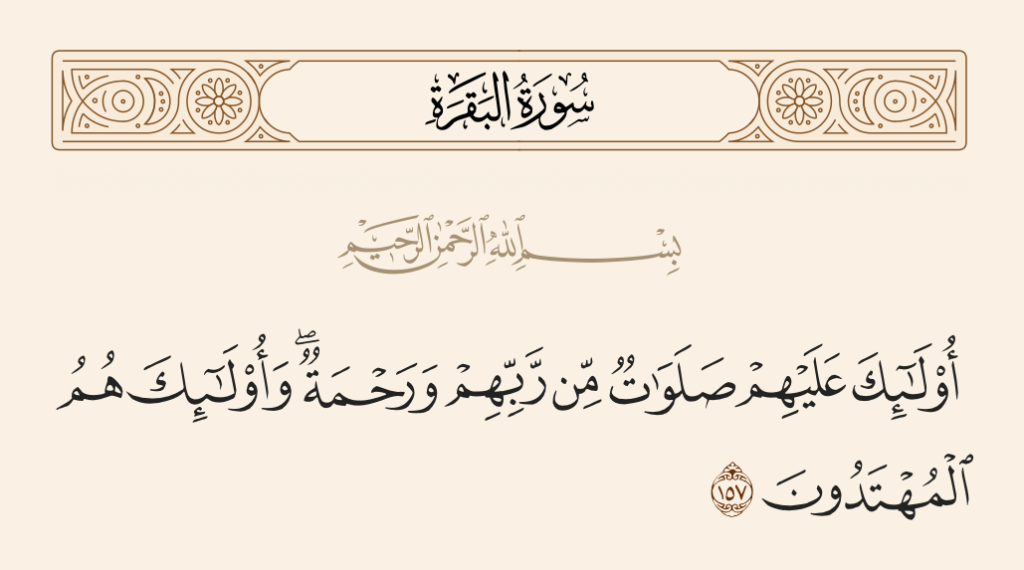 سُورَةُ البَقَرَةِ
بِسْمِ ٱللَّهِ ٱلرَّحْمَٰنِ ٱلرَّحِيمِ
أُو۟لَـٰٓئِكَ عَلَيْهِمْ صَلَوَٰتٌ مِّن رَّبِّهِمْ وَرَحْمَةٌ ۖ وَأُو۟لَـٰٓئِكَ هُمُ
ٱلْمُهْتَدُونَ ١٥٧